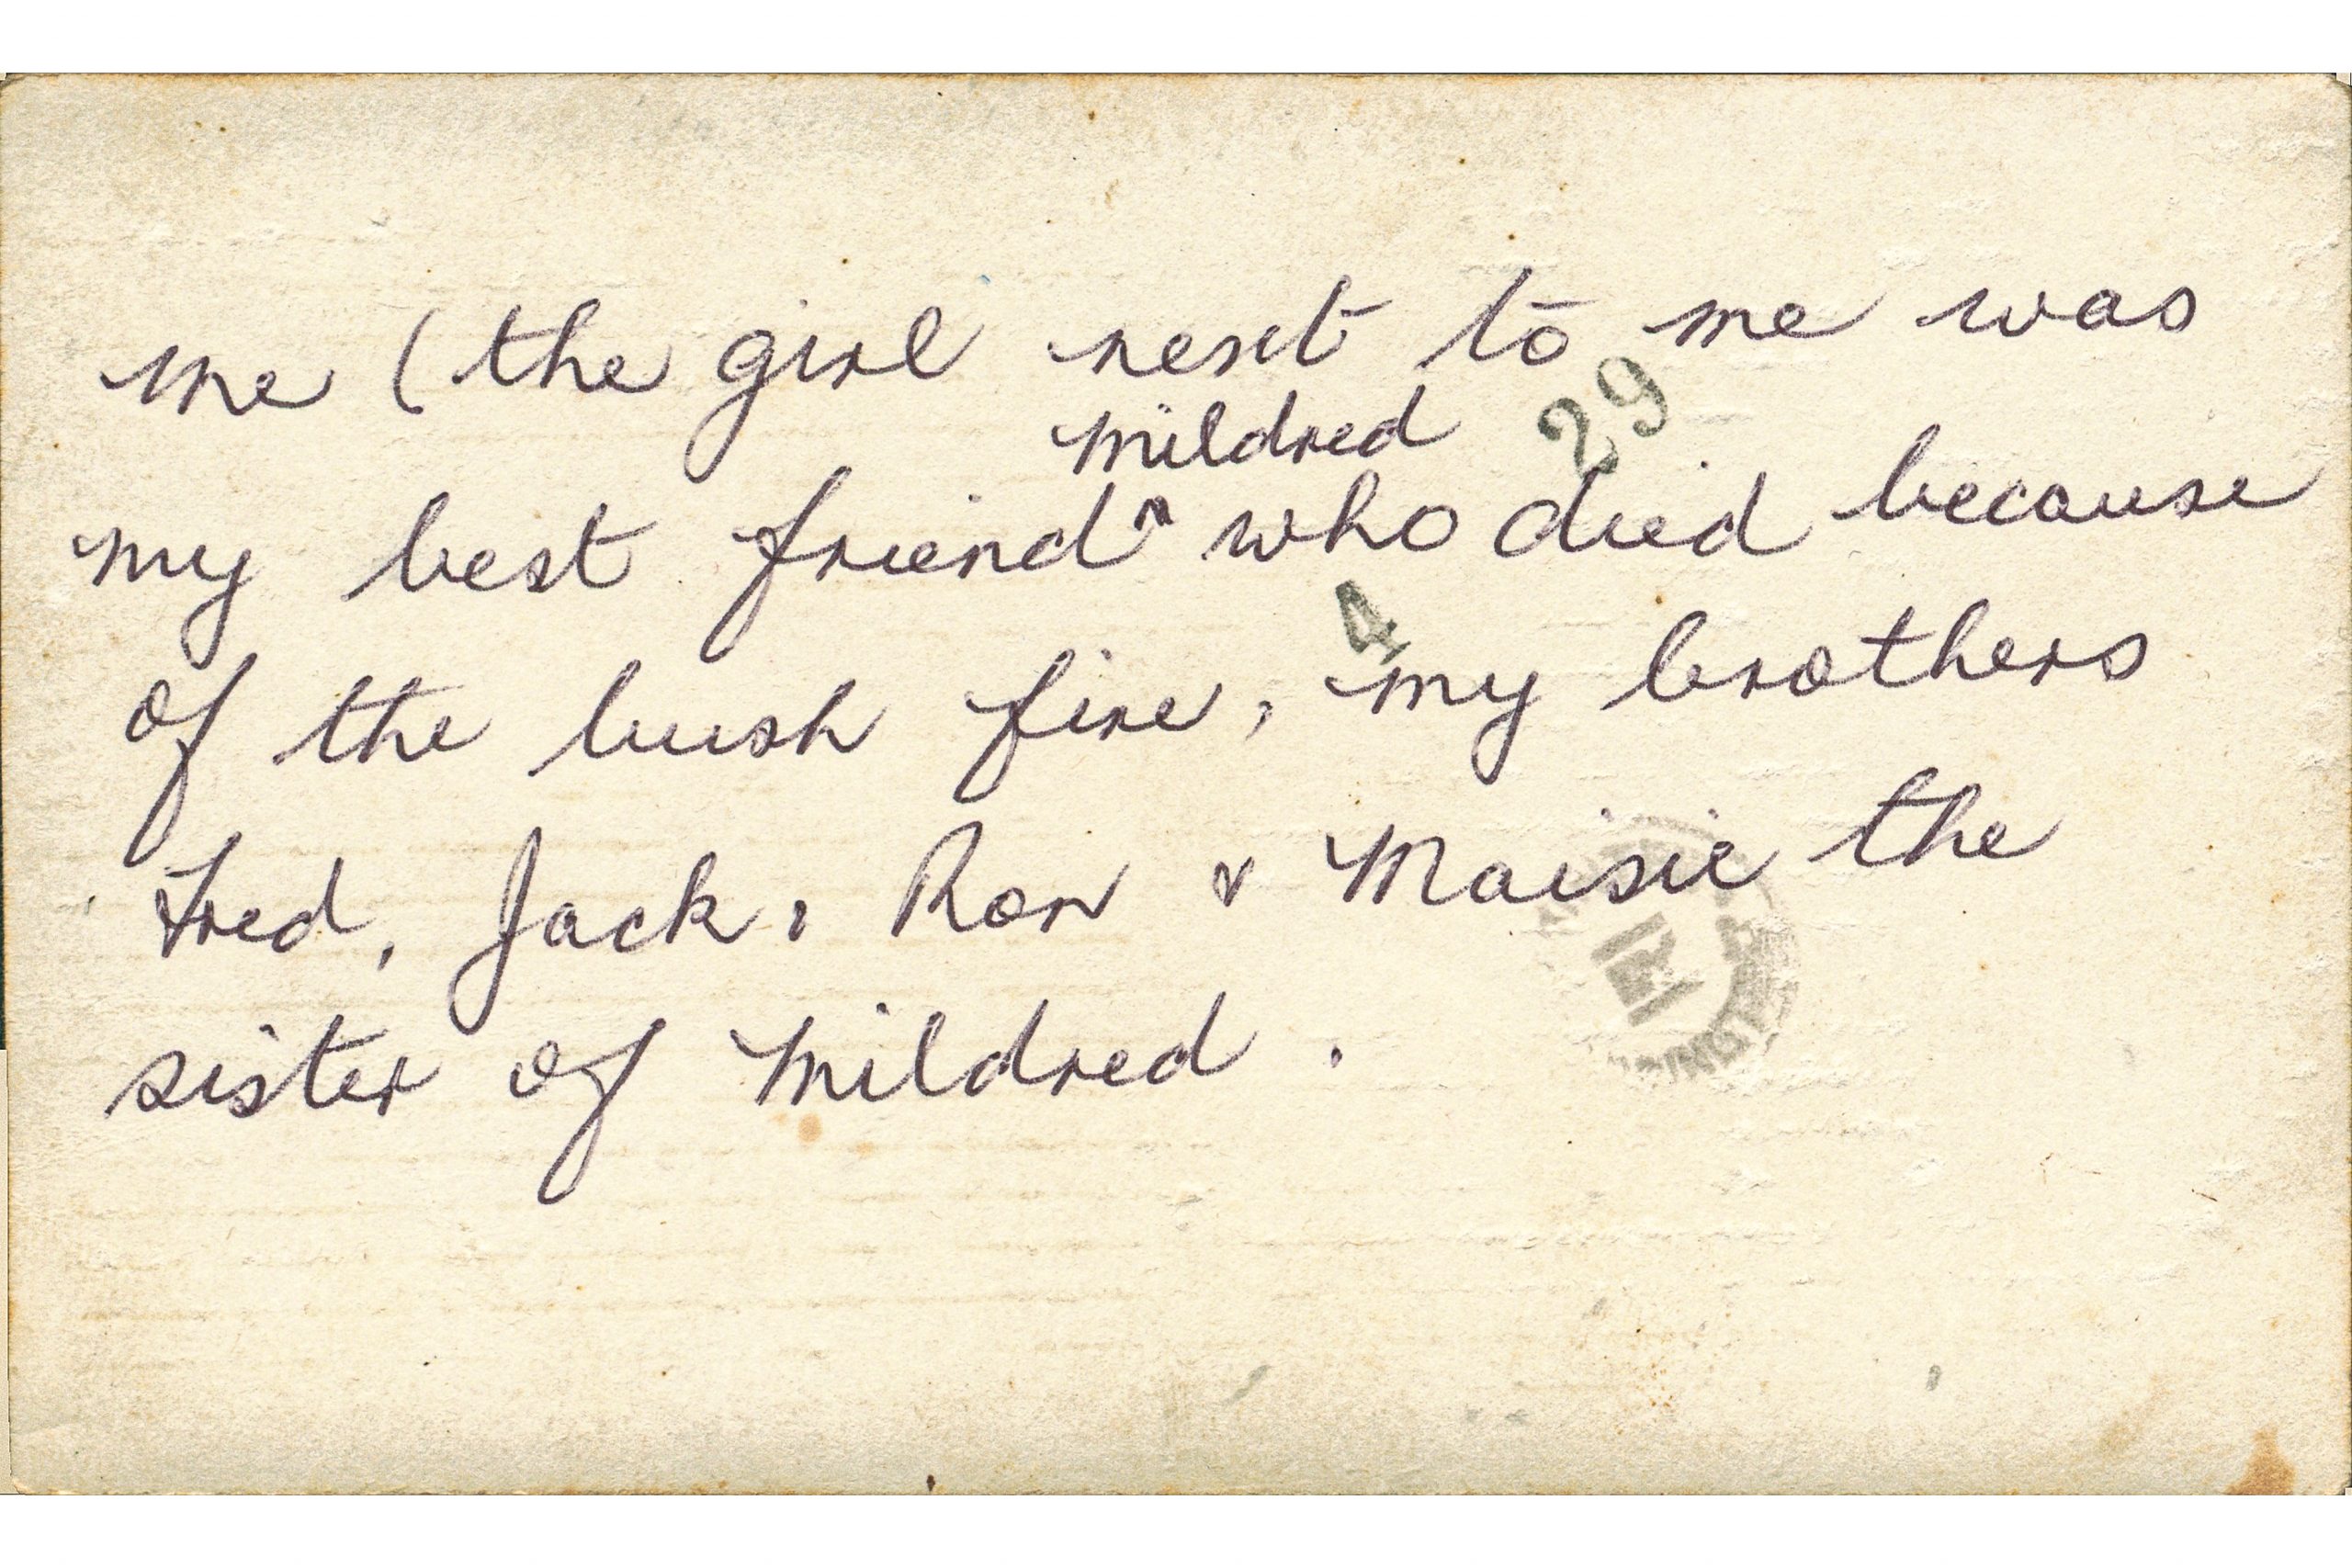 me (the girl next to me was
Mildred
29
my best friend ^ who died because
4
of the bush fire, my brothers
Fred, Jack, Ron & Maisie the
sister of Mildred.